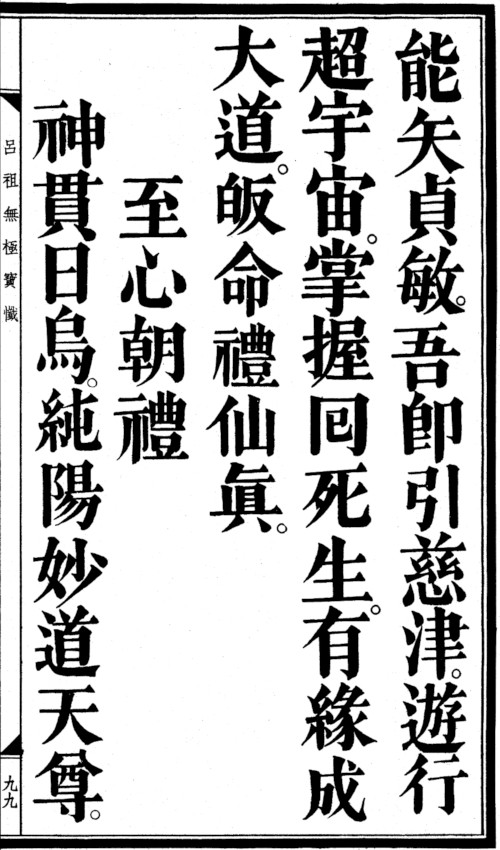 能矢貞敏。吾即引慈津。遊行
超宇宙。掌握回死生。有緣成
大道。皈命禮仙眞。
至心朝禮
神貫日烏。純陽妙道天尊。
呂祖無極寶懺
九九